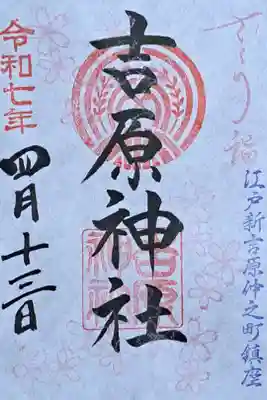 さくら詣
江戸新吉原仲之町鎮座
吉原神社
令和七年
四月十三日